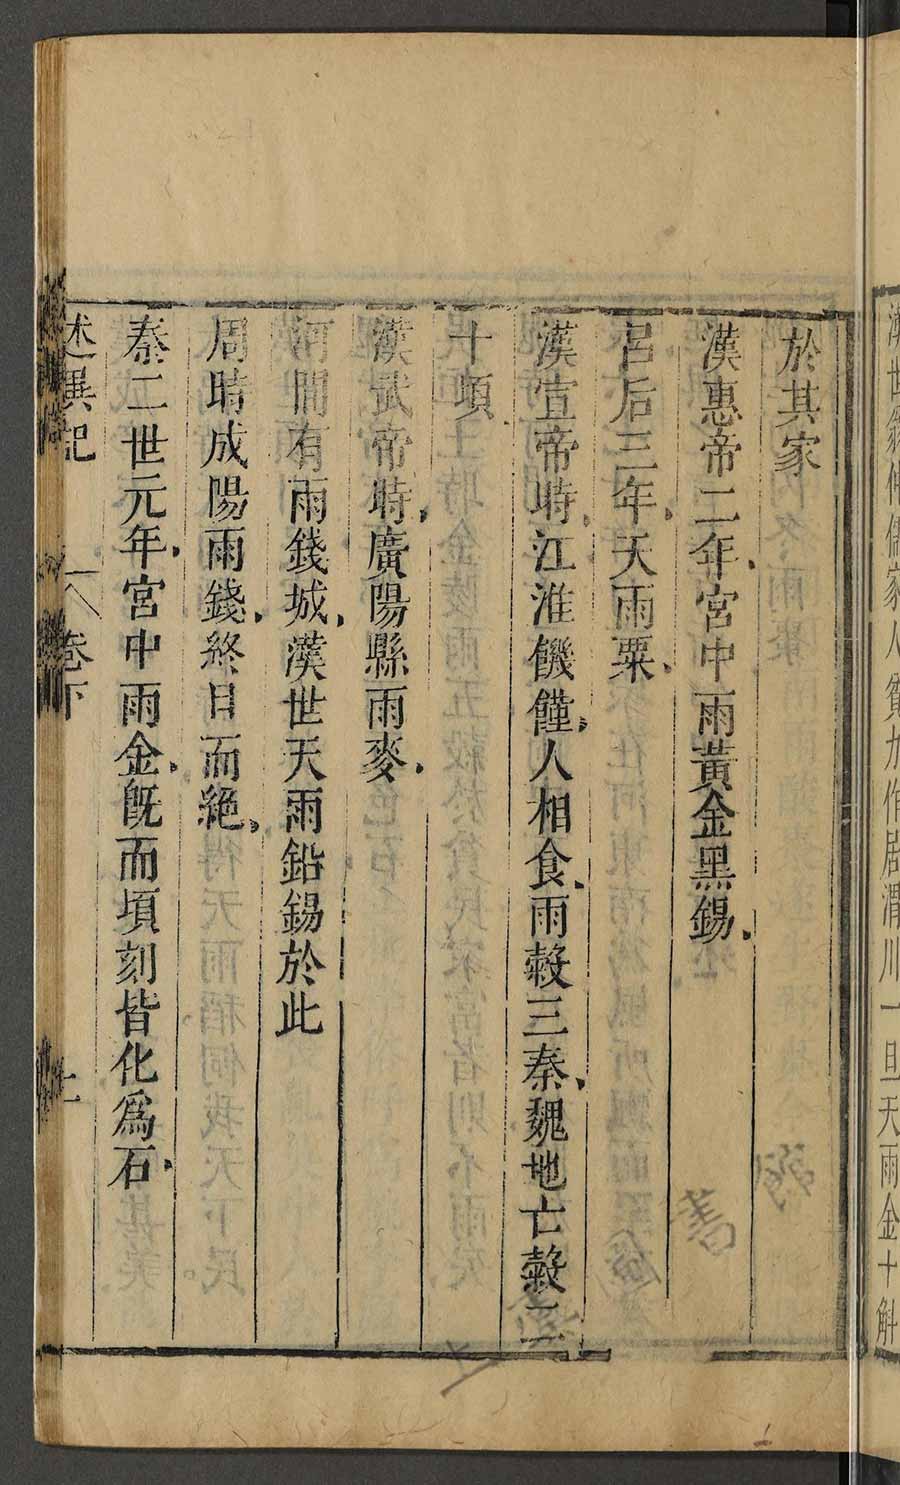 漢世翁仲儒家人貧力作居渭川一旦天雨金十斛
於其家
漢惠帝二年宮中雨黃金黑錫
呂后三年天雨粟
漢宣帝時江淮饑饉人相食雨穀三秦魏地亡穀二
十頃
漢武帝時廣陽縣雨麥
河間有雨錢城漢世天雨鉛錫於此
周時成陽雨錢終日而絕
秦二世元年宮中雨金既而頃刻皆化爲石
述異記 卷下